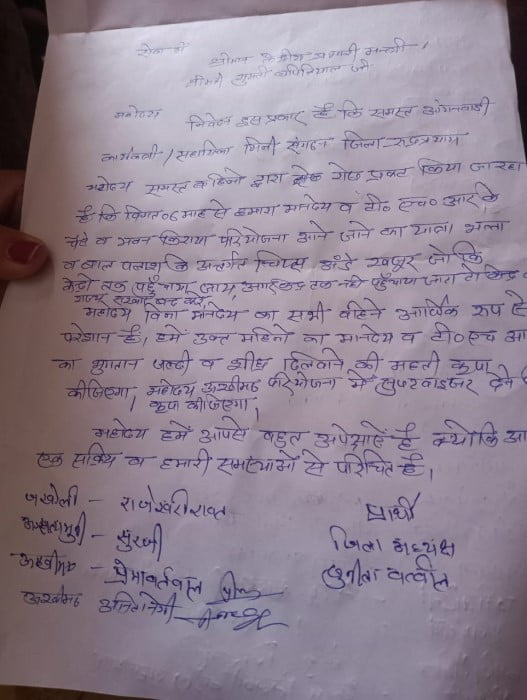 सेवा में
श्रीमान केन्द्रीय प्रभारी मन्त्री,
महोदय निवेदन इस प्रकार है कि समस्त आंगनवाड़ी
कार्यकर्त्री / सहायिका मिनी संगठन जिला रुद्रप्रयाग
महोदय समस्त बहिनों द्वारा प्रकट किया जा रहा
है कि विगत 06 माह से हमारा मानदेय व टी० एच० आर० के
व भवन किराया परियोजना आने जाने का यात्रा भत्ता
व बाल पलाश के अन्तर्गत चिप्स अंडे खजूर जो कि
केन्द्रों तक पहुँचाया जाय, केन्द्र तक नहीं पहुँचाया जाता तो
राज्य सरकार बन्द करें
महोदय बिना मानदेय का सभी बहिनें आर्थिक रूप से
परेशान हैं, हमें उक्त महिनों का मानदेय व टी० एच आ
का भुगतान जल्दी व शीघ्र दिलवाने की महती कृपा
कीजिएगा, महोदय ऊखीमठ परियोजना में सुपरवाइजर देने
कृपा कीजिएगा,
महोदय हमें आपसे बहुत अपेक्षाऐं हैं क्योंकि आ
एक सक्रिय व हमारी समस्याओं से परिचित हैं,
जखोली - राजेश्वरी रावत
अगस्त्यमुनी - सुरजी
ऊखीमठ - प्रेमा बर्तवाल
ऊखीमठ अनिता नेगी
प्रार्थी
जिला अध्यक्ष